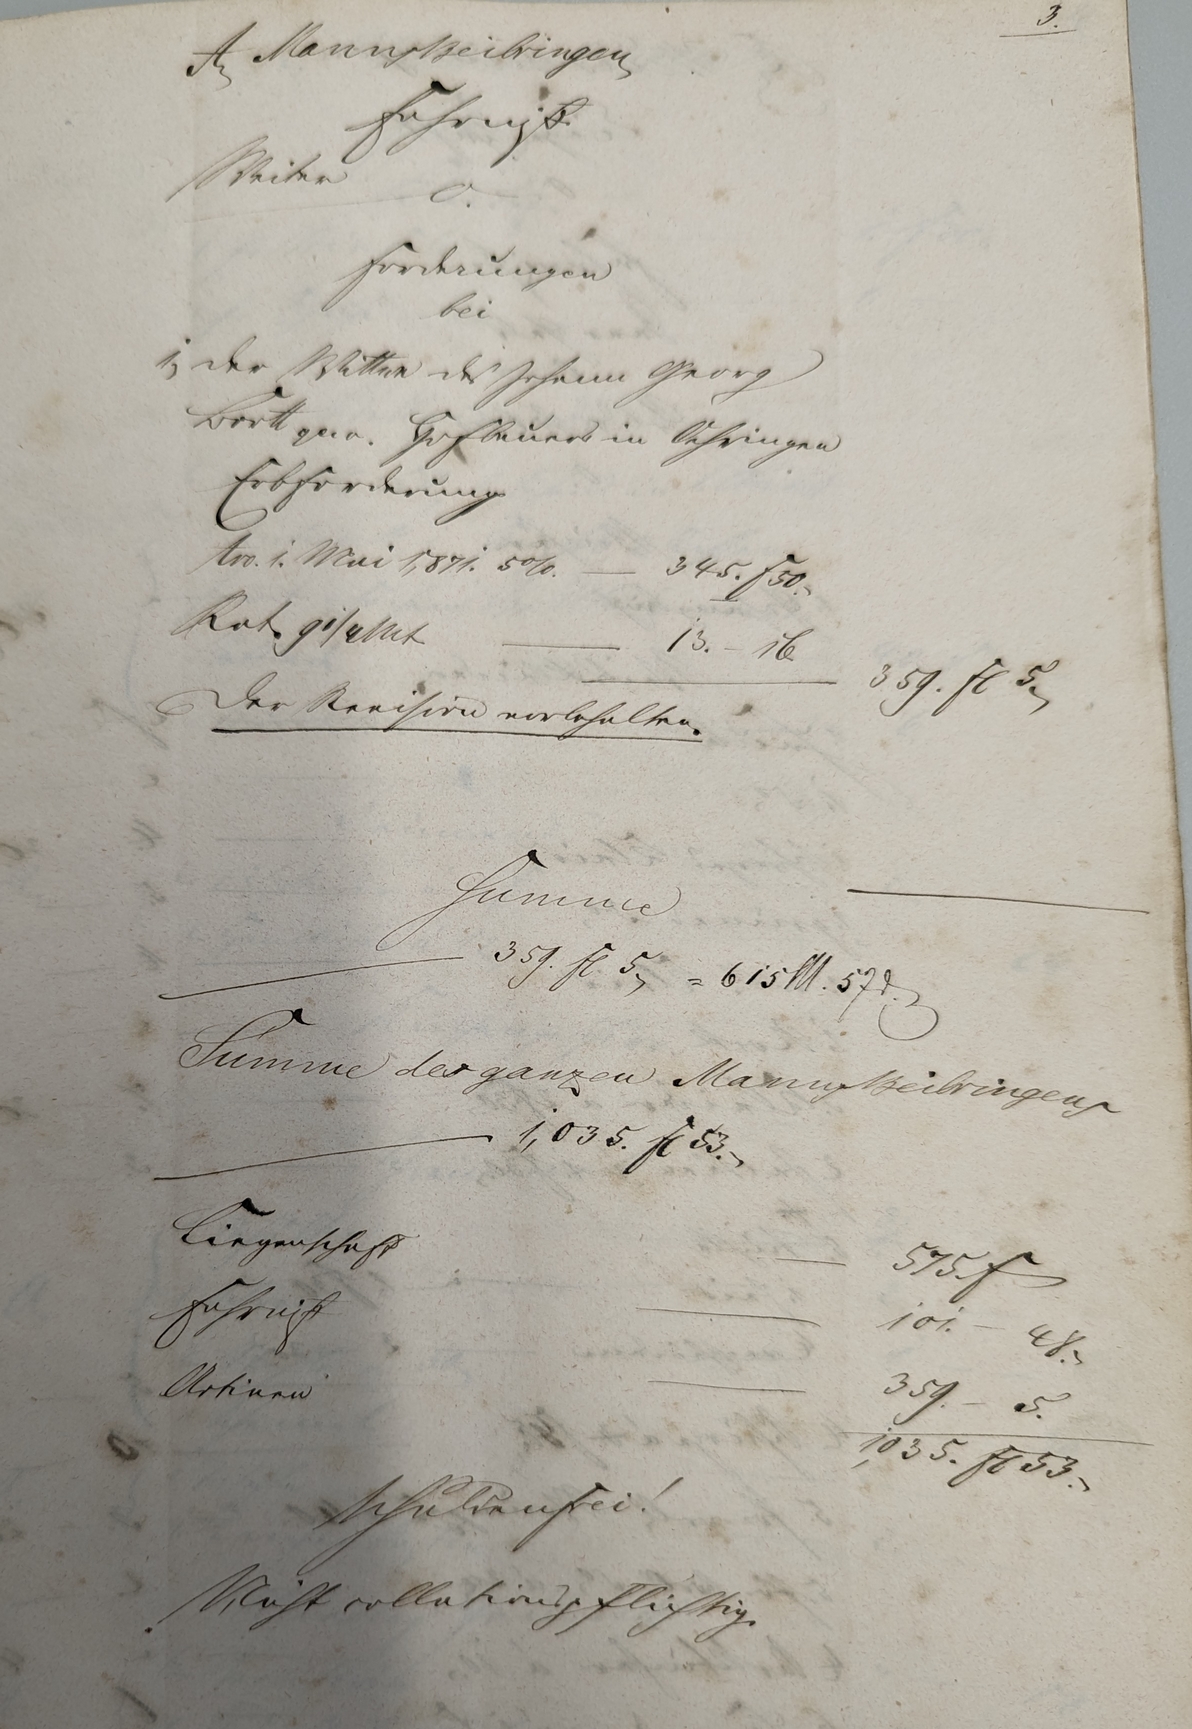 3.
A, Mannsbeibringen,
Fahrniß.
Weiter
o.
Forderungen
bei
1, der Wittwe des Johann Georg
Bort gew. Hofbauers in Oehringen
Erbforderung
1. Mai 1,871. 5%. — 345. f 50.,
Rat. 9 1/4 Mt — 13. – 16
359. fl 5.,
Der Revision vorbehalten.
Summe
359. fl 5, = 615 M. 57 d.
Summe des ganzen Mannsbeibringens
1,035. fl 53.,
Liegenschaft — 575. f —
Fahrniß — 101. – 48.,
Activen — 359. – 5.
1,035. fl 53.,
Schuldenfrei!
Nicht collationspflichtig.